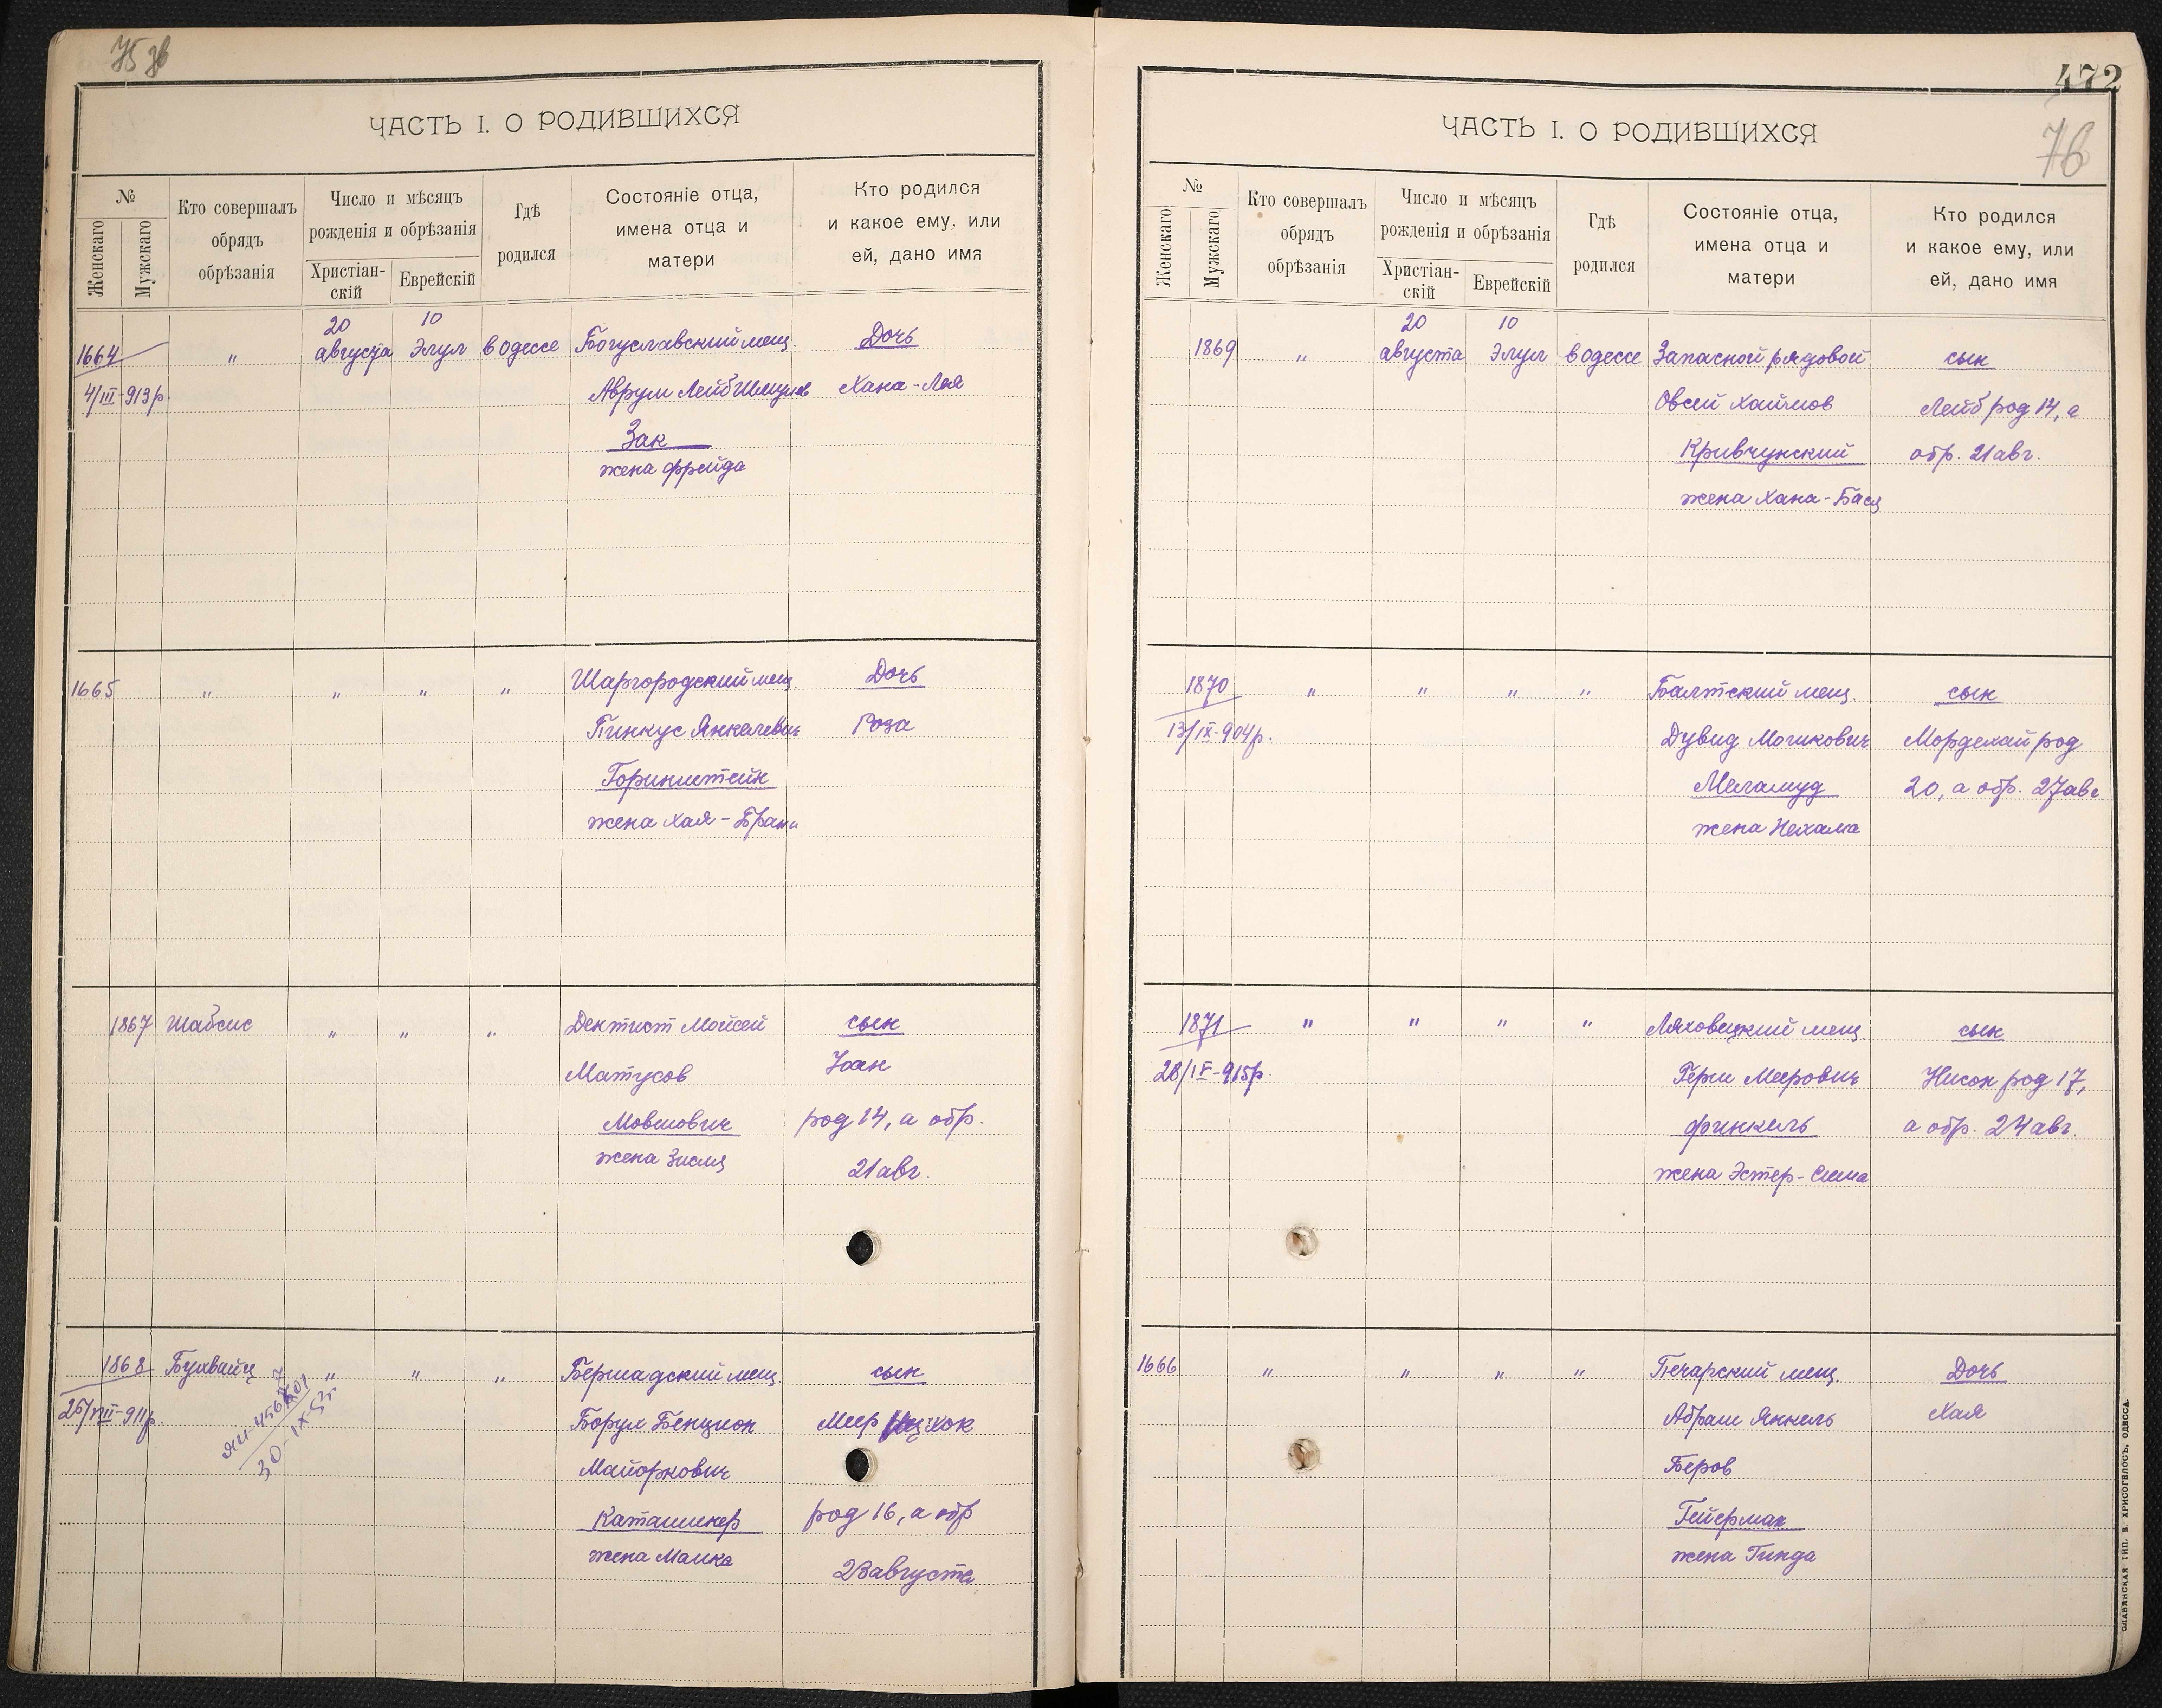 472
76
ЧАСТЬ I. О РОДИВШИХСЯ
№
Женскаго
Мужскаго
Кто совершалъ
обрядъ
обрѣзанія
Число и мѣсяцъ
рожденія и обрѣзанія
Христіан-
скій
Еврейскій
Гдѣ
родился
Состояніе отца,
имена отца и
матери
Кто родился
и какое ему, или
ей, дано имя
1664 " 20 августа 10 Элул в Одессе Богуславский мещ. Дочь
4/III-913 р. Аврум Лейб Шмулев Хана-Лея
Зак
жена Фрейда
1665 " " " " Шаргородский мещ Дочь
Пинкус Янкелевич Роза
Горинштейн
жена Хая-Брана
1867 Шабсис " " " Дентист Мойсей сын
Матусов Іоан
Мовшович род 14, а обр.
жена Зисля 21 авг.
1868 Бухвайц " " " Бершадский мещ. сын
25/VIII-911 р. Борух Бенцион Меер
Майоркович
Каташинер род 16, а обр
жена Манка 23 августа
ЧАСТЬ I. О РОДИВШИХСЯ
№
Женскаго
Мужскаго
Кто совершалъ
обрядъ
обрѣзанія
Число и мѣсяцъ
рожденія и обрѣзанія
Христіан-
скій
Еврейскій
Гдѣ
родился
Состояніе отца,
имена отца и
матери
Кто родился
и какое ему, или
ей, дано имя
1869 " 20 августа 10 Элул в Одессе Запасной рядовой сын
Овсей Хаимов Лейб род 14, а
Кривчунский обр. 21 авг.
жена Хана-Бася
1870 " " " " Балтский мещ. сын
13/IX-904 р. Дувид Мошкович Мордехай род
Меламуд 20, а обр. 27 авг
жена Нехама
1871 " " " " Ляховецкий мещ. сын
Герш Меерович Нисон род 17,
Финкель а обр. 24 авг.
жена Эстер-Сима
1666 " " " " Печарский мещ. Дочь
Абрам Янкель Хая
Беров
Гейерман
жена Гинда
СЛАВЯНСКАЯ ТИП. Н. ХРИСОГЕЛОСЪ, ОДЕССА.